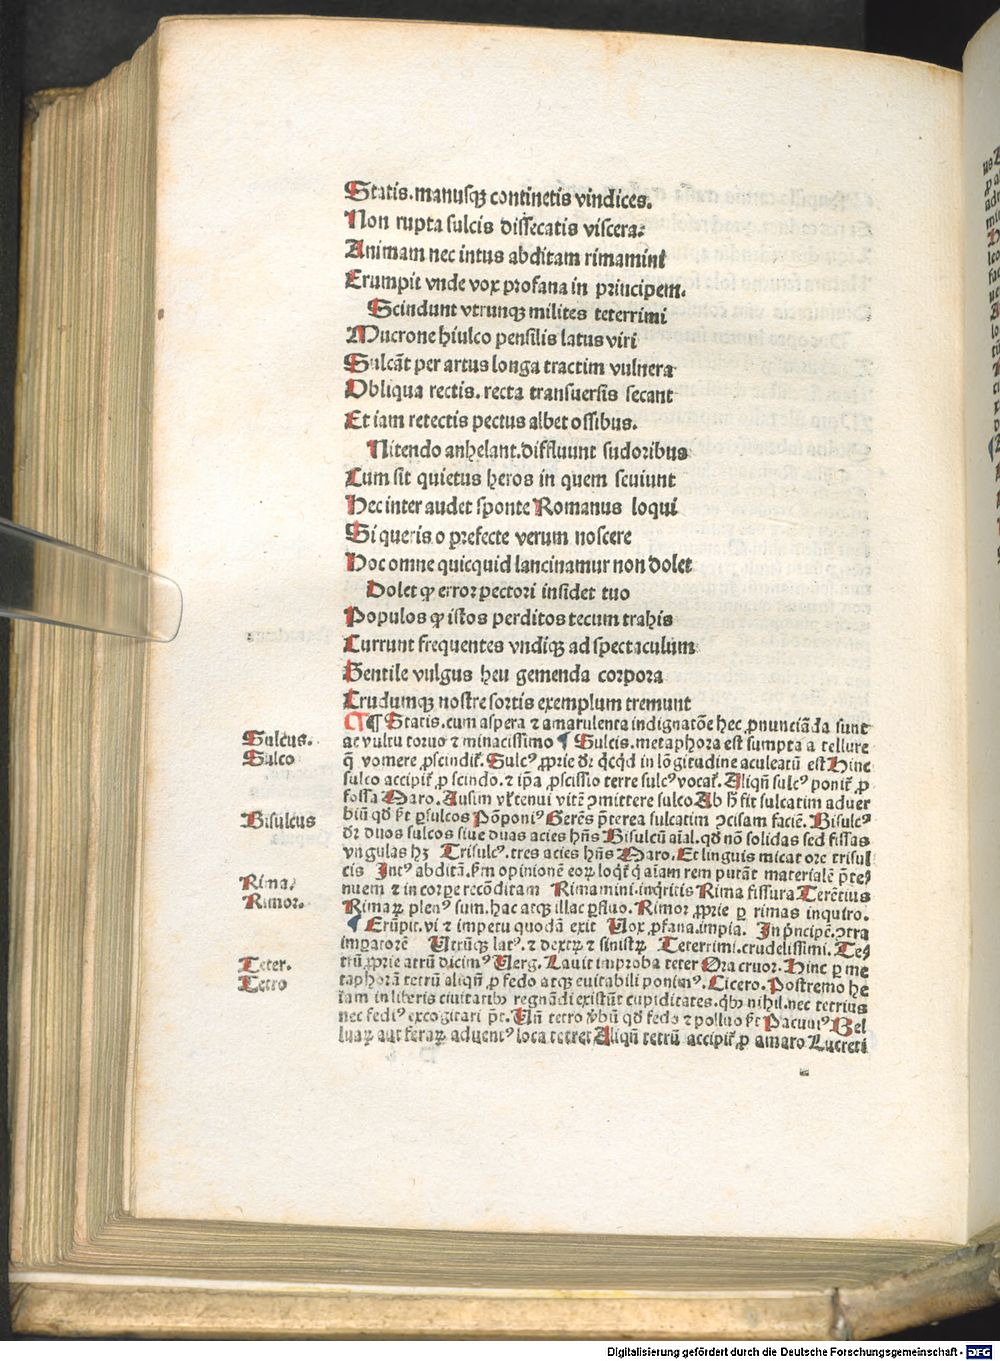 Statis.manusqꝫ continetis vindices.
Non rupta sulcis dissecatis viscera:
Animam nec intus abditam rimamini
Erumpit vnde vox profana in principem.
Scindunt vtrunqꝫ milites teterrimi
Mucrone hiulco pensilis latus viri
Sulcāt per artus longa tractim vulnera
Obliqua rectis.recta transuersis secant
Et iam retectis pectus albet ossibus.
Nitendo anhelant.diffluunt sudoribus
Cum sit quietus heros in quem seuiunt
Hec inter audet sponte Romanus loqui
Si queris o prefecte verum noscere
Hoc omne quicquid lancinamur non dolet
Dolet ꝙ error pectori insidet tuo
Populos ꝙ istos perditos tecum trahis
Currunt frequentes vndiqꝫ ad spectaculum
Gentile vulgus heu gemenda corpora
Crudumqꝫ nostre sortis exemplum tremunt
¶ Statis.cum aspera ⁊ amarulenta indignatōe hec ꝓnunciāda sunt
ac vultu toruo ⁊ minacissimo ¶ Sulcis.metaphora est sumpta a tellure
q̄ vomere ꝓscindit᷑. Sulcꝰ ꝓprie d᷑r qcqd in lōgitudine aculeatū est Hinc
sulco accipit᷑ ꝓ scindo.⁊ ip̄a ꝓscissio terre sulcꝰ vocat᷑. Aliqn̄ sulcꝰ ponit᷑ ꝓ
fossa Maro.Ausim vl᷑ tenui vitē ꝯmittere sulco Ab h̄ fit sulcatim aduer
biū qd̄ s̄t ꝑ sulcos Pōponiꝰ Gerēs p̄terea sulcatim ꝯcisam faciē. Bisulcꝰ
d᷑r duos sulcos siue duas acies hn̄s Bisulcū aīal.qd̄ nō solidas sed fissas
vngulas hꝫ Trisulcꝰ.tres acies hn̄s Maro.Et linguis micat ore trisul
cis Intꝰ abditā.s̄m opinionē eoꝝ loqt᷑ q̄ aīam rem putāt materialē p̄te
nuem ⁊ in corꝑe recōditam Rimamini.inqritis Rima fissura Terētius
Rimaꝝ plenꝰ sum.hac atqꝫ illac ꝑfluo. Rimor ꝓprie ꝑ rimas inquiro.
¶ Erūpit.vi ⁊ impetu quodā exit Vox ꝓfana.impia. In p̄ncipē.ꝯtra
imꝑatorē Vtrūqꝫ latꝰ.⁊ dextꝝ ⁊ sinistꝝ Teterrimi.crudelissimi. Te
trū ꝓprie atrū dicimꝰ Verg.Lauit improba teter Ora cruor. Hinc ꝑ me
taphorā tetrū aliqn̄ ꝓ fedo atqꝫ euitabili ponimꝰ.Cicero.Postremo he
tam in liberis ciuitatibꝰ regnādi existūt cupiditates.qbꝰ nihil.nec tetrius
nec fediꝰ excogitari p̄t. Vn̄ tetro v̄bū qd̄ fedo ⁊ polluo s̄t Pacuuiꝰ Bel
luaꝝ aut feraꝝ aduentꝰ loca tetret Aliqn̄ tetrū accipit᷑ ꝓ amaro Lucreti
Sulcus.
Sulco
Bisulcus
Rima.
Rimor.
Teter.
Tetro
Digitalisierung gefördert durch die Deutsche Forschungsgemeinschaft - DFG